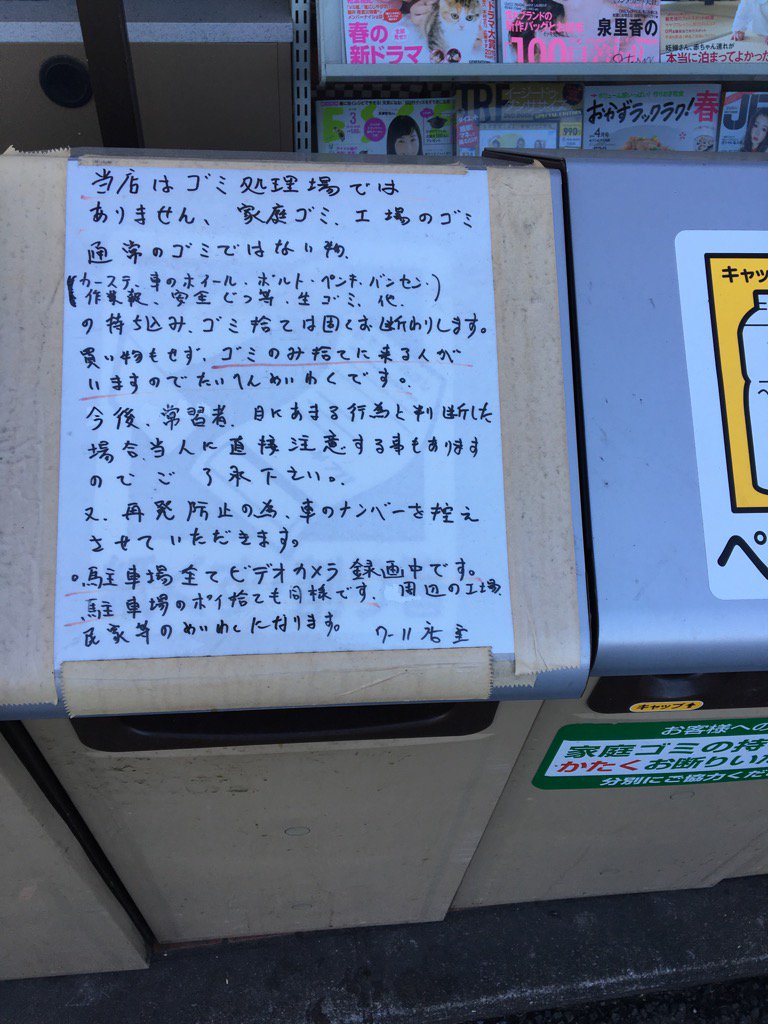 春の
新ドラマ
泉里香の
100
本当に泊まってよかった
3
990
おかずラックラク!
春
4月号
当店はゴミ処理場では
ありません、家庭ゴミ、工場のゴミ
通常のゴミではない物、
(カーステ、車のホイール・ボルト・ペンキ・バンセン・
作業服、安全ぐつ等、生ゴミ、他、)
の持ち込み、ゴミ捨ては固くお断わりします。
買い物もせず、ゴミのみ捨てに来る人が
いますのでたいへんめいわくです。
今後、常習者、目にあまる行為と判断した
場合、当人に直接注意する事もあります
のでご了承下さい。
又、再発防止の為、車のナンバーを控え
させていただきます。
。駐車場全てビデオカメラ録画中です。
駐車場のポイ捨ても同様です、周辺の工場、
民家等のめいわくになります。 7-11店主
キャッ
ペ
キャップ↑
お客様への
家庭ゴミの持
かたくお断りいた
分別にご協力くだ